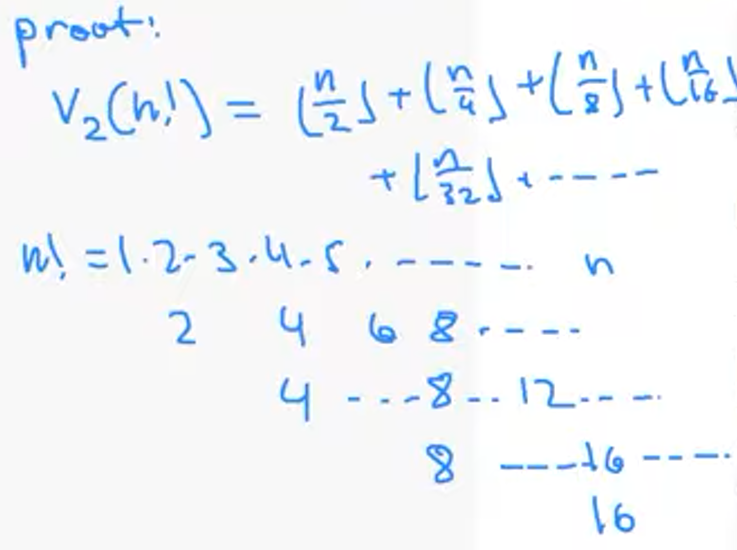 proof:
V₂(n!) = ⌊n/2⌋ + ⌊n/4⌋ + ⌊n/8⌋ + ⌊n/16⌋
+ ⌊n/32⌋ + -----
n! = 1·2·3·4·5· ------· n
2 4 6 8 ·----
4 ---8-- 12----
8 ----16 ----
16